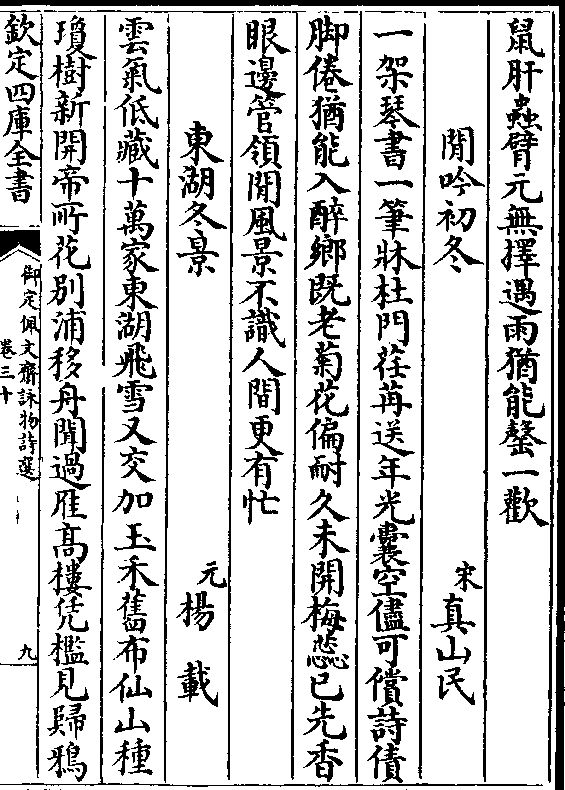 鼠肝蟲臂元無擇遇雨猶能罄一歡
閒吟初冬　宋真山民
一架琴書一筆牀杜門荏苒送年光囊空儘可償詩債
脚倦猶能入醉鄉既老菊花偏耐久未開梅蕊已先香
眼邊管領閒風景不識人間更有忙
東湖冬景　元楊載
雲氣低藏十萬家東湖飛雪又交加玉禾舊布仙山種
瓊樹新開帝所花別浦移舟聞過雁高樓凭檻見歸鴉
欽定四庫全書
御定佩文齋詠物詩選
卷三十
九